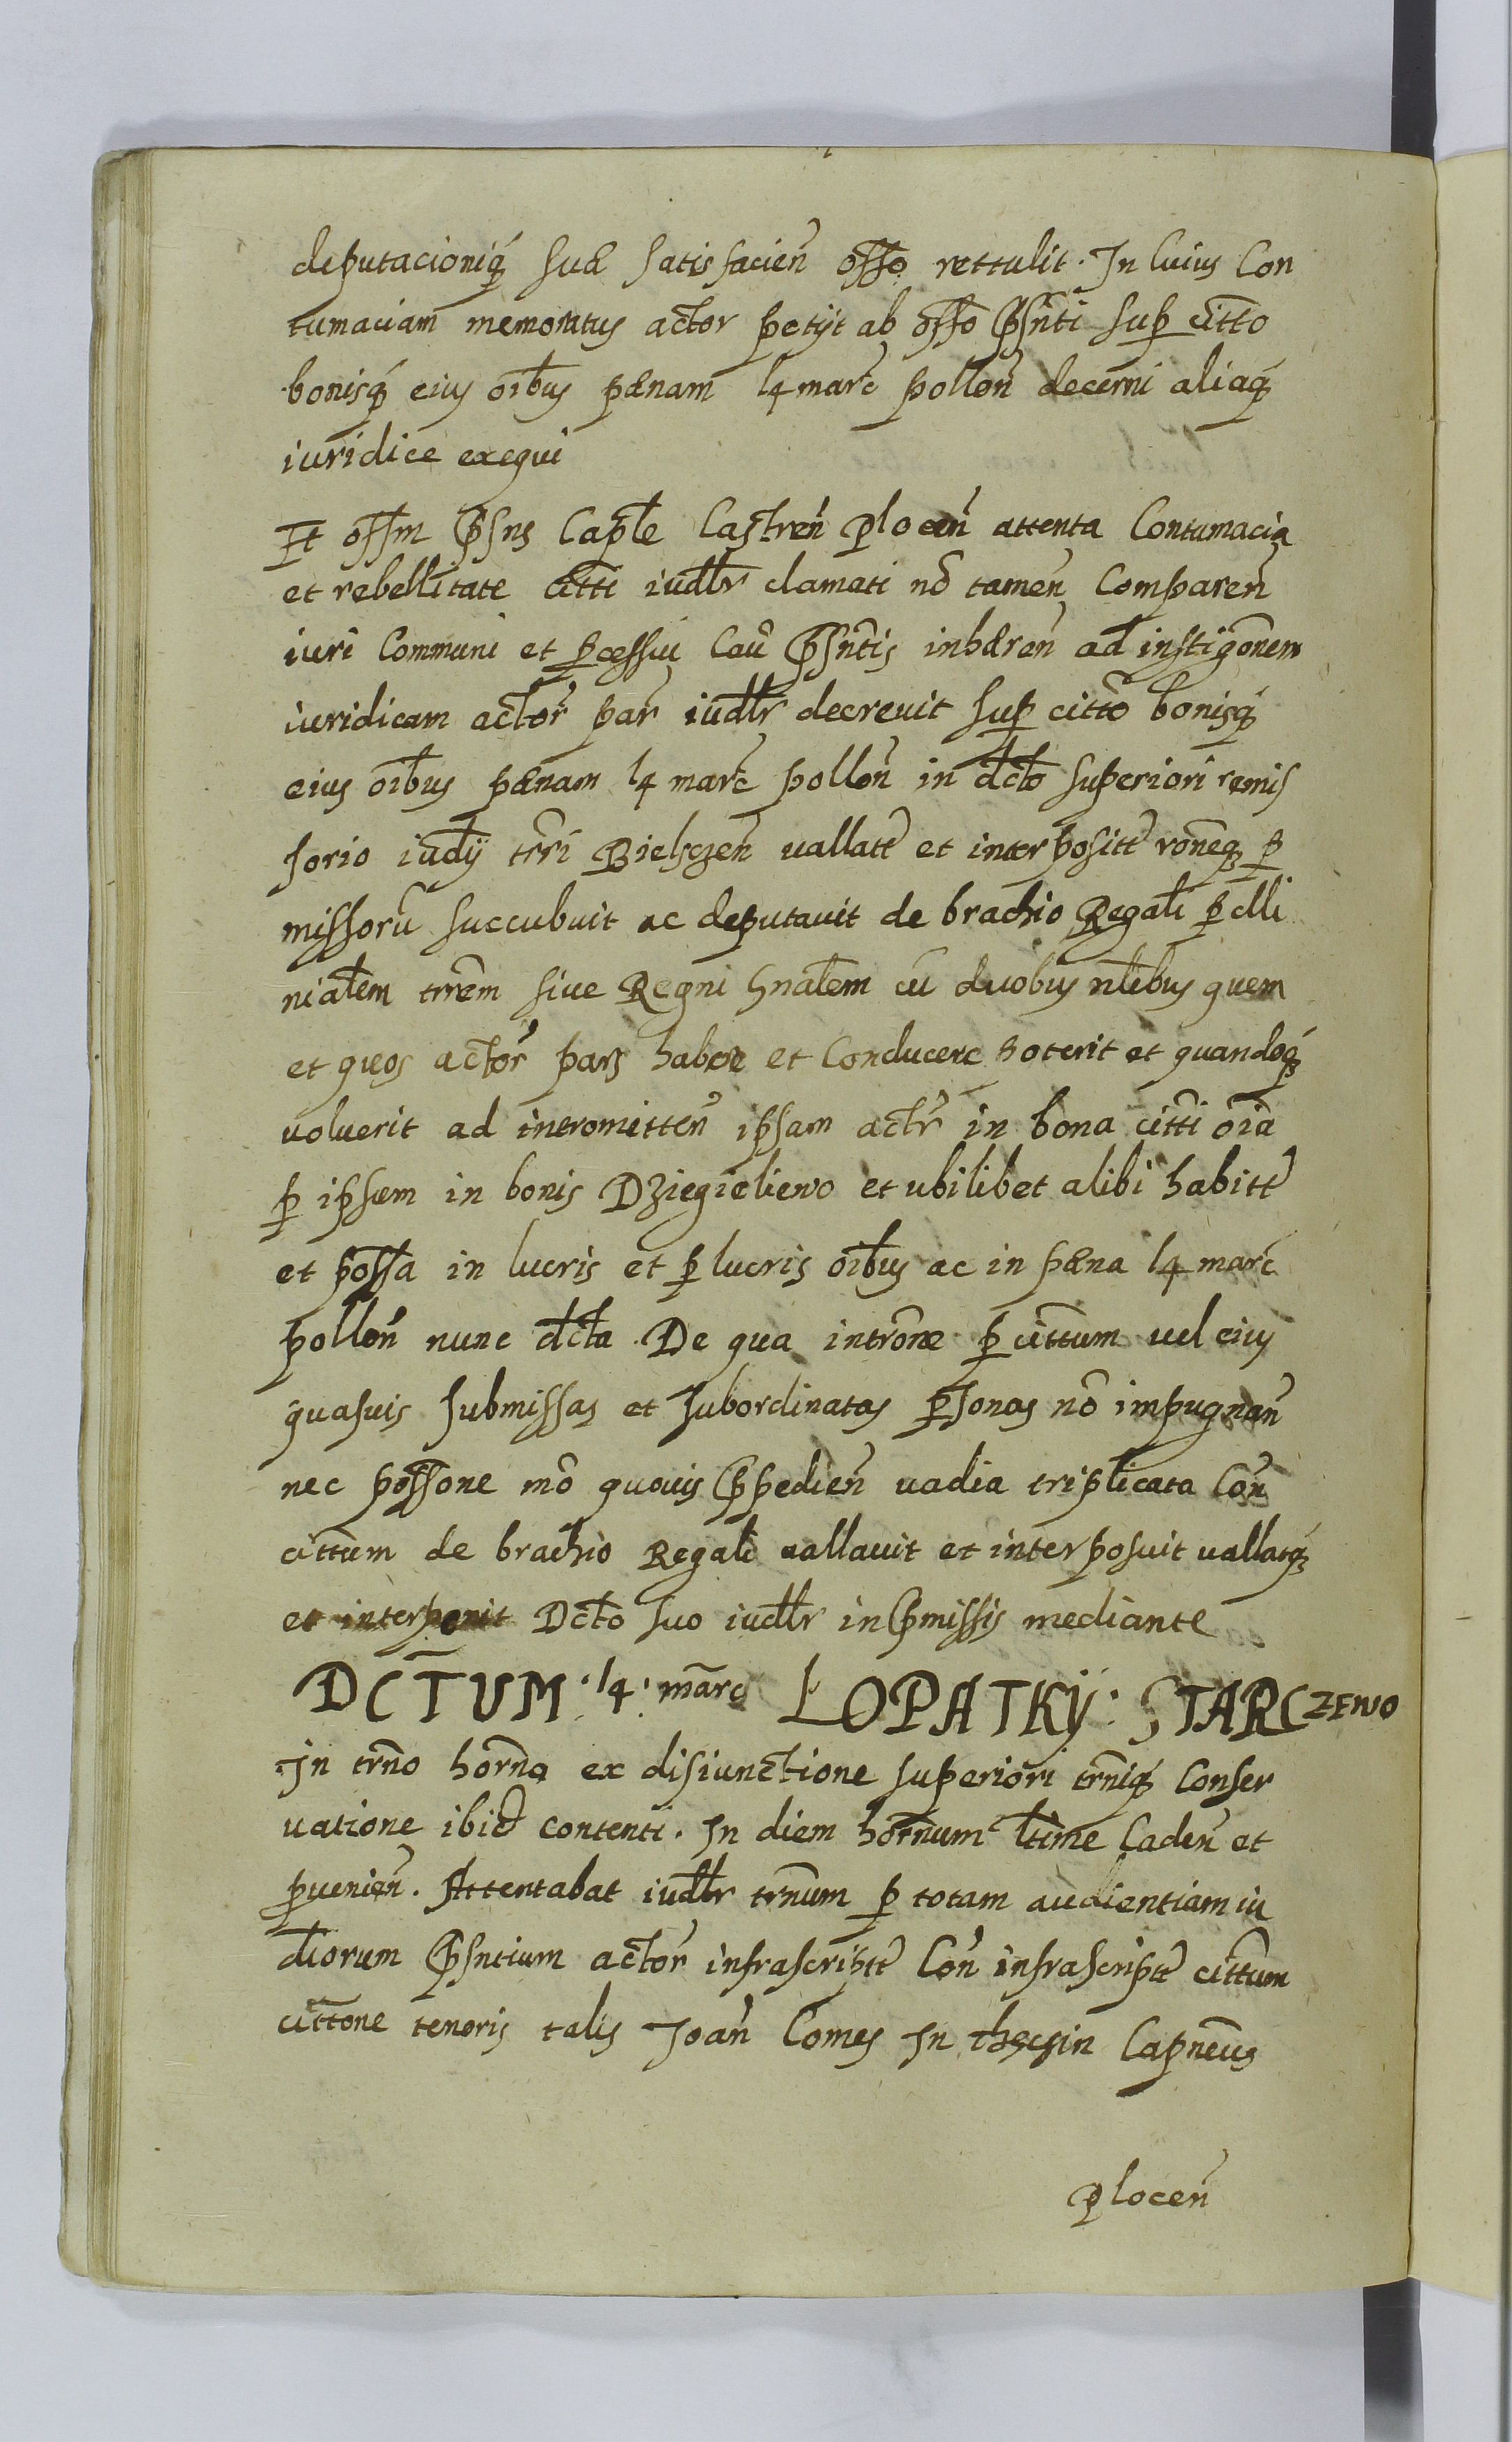 deputacioniq́ʒ suæ satisfacień offo rettulit. In Cuius Con
tumaciam memoratus actor petijt ab offo Pn̄sti sup citto
bonisq́ʒ eius oībus pænam 14 marc̄ polloń decerni aliaq́ʒ
iuridice exequi
Et offm Pn̄s Capt̄e Castreń Ploceń attenta Contumacia
et rebellitate citti iudl̄r clamati nō tameń Compareń
iuri Communi et pcessui Cau Pn̄stis inhæreń ad instigōnem
iuridicam actoŕ paŕ iudl̄r decreuit sup citto bonisq́ʒ
eius oībus pænam 14 marc̄ polloń in dc̄to superiori remis
sorio iudij trr̄i Bielsczeń uallatt̄ et interpositt̄ rōneqʒ p
missorū succubuit ac deputauit de brachio Regali p cllī
nial̄em trrēm siue Regni gnal̄em cū duobus nl̄ibus quem
et quos actoŕ pars habere et Conducere poterit et quandoq́ʒ
voluerit ad intromitteń ipsam actr̄ in bona citti oīa
p ipsum in bonis Dziegielewo et ubilibet alibi habitt̄
et possa in lucris et p lucris oībus ac in pæna 14 marc̄
polloń nunc dc̄ta. De qua intrōne p cittum uel eius
quasuis submissas et subordinatas psonas nō impugnań
nec possone mō quouis Ppedień uadia triplicata Coń
cittum de brachio Regali uallauit et interposuit uallatq́ʒ
et interponit Dc̄to suo iudl̄r in Pmissis mediante
DC̄TUM. 14. mārc ŁOPATKŸ: STARCZEWO
In trn̄o horn̄o ex disiunctione superiori trn̄iq́ʒ Conser
uatione ibid contenti. In diem horn̄um l̄time Cadeń et
pueniéń. Attentabat iudl̄r trn̄um p totam audientiam iu
dīorum Pn̄stium actoŕ infrascriptt̄ Coń infrascriptt̄ cittum
cittone tenoris talis Joań Comes In thecżin Capneūs
Ploceń